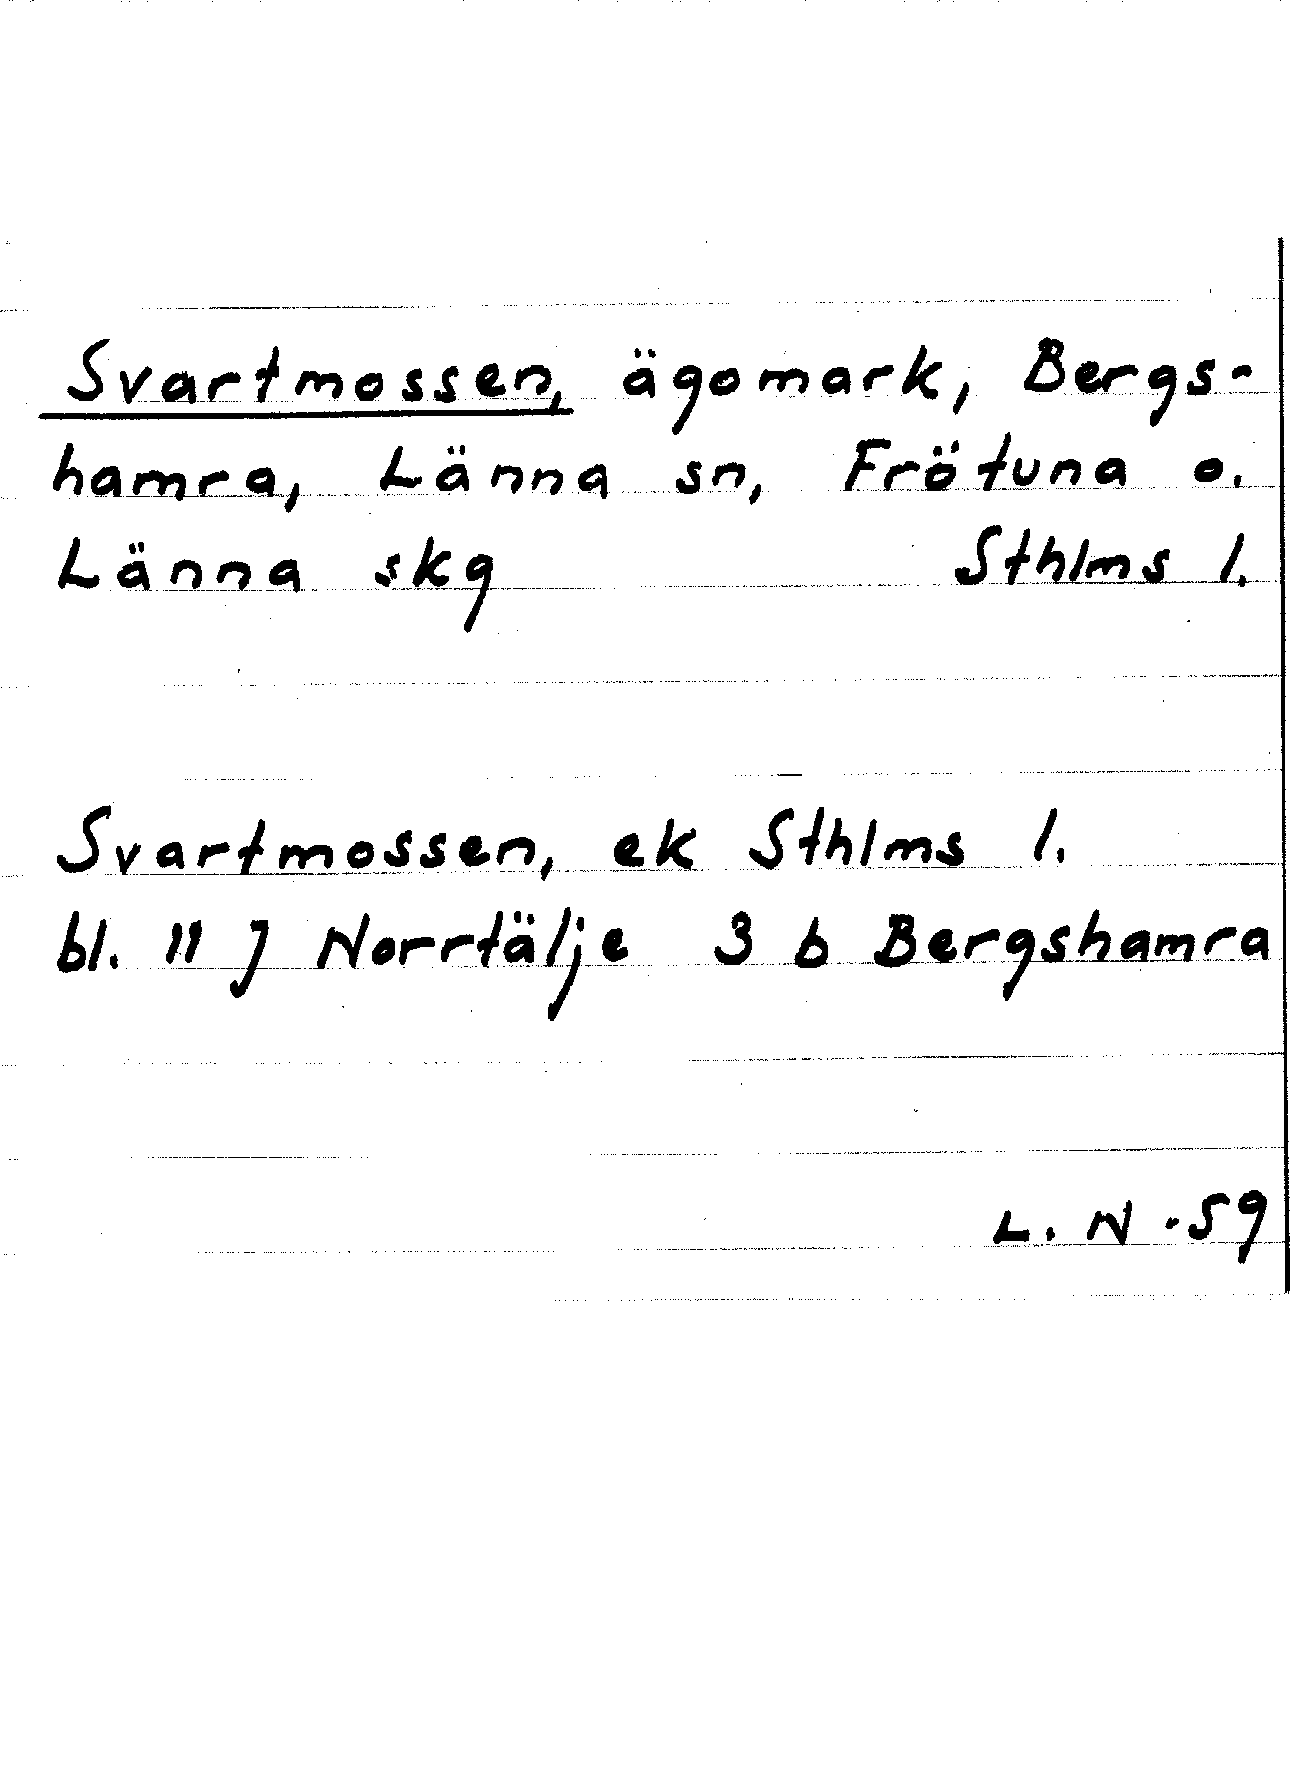 Svartmossen, ägomark, Bergs-
hamra, Länna sn, Frötuna o.
Länna skg Sthlms l.
Svartmossen, ek Sthlms l.
bl. 11 J Norrtälje 3 b Bergshamra
L. N -59